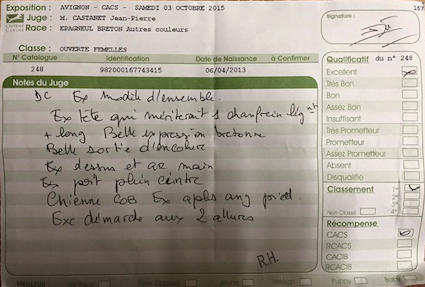 Exposition : AVIGNON - CACS - SAMEDI 03 OCTOBRE 2015
167
Juge : M. CASTANET Jean-Pierre
Race : EPAGNEUL BRETON Autres couleurs
Signature :
Classe : OUVERTE FEMELLES
N° Catalogue Identification Date de Naissance à Confirmer
248 982000167743415 06/04/2013
Notes du Juge
DC Ex modèle d'ensemble.
Ex tête qui mériterait 1 chanfrein lég^nt
+ long Belle expression bretonne
Belle sortie d'encolure
Ex dessus et AR main
Ex port plein cintre
Chienne COB Ex aplbs ang
Exc démarche aux 2 allures
R.H.
Qualificatif du n° 248
Excellent
Très Bon
Bon
Assez Bon
Insuffisant
Très Prometteur
Prometteur
Assez Prometteur
Absent
Disqualifié
Classement
Non Classé
Récompense
CACS
RCACS
CACIB
RCACIB
Puppy